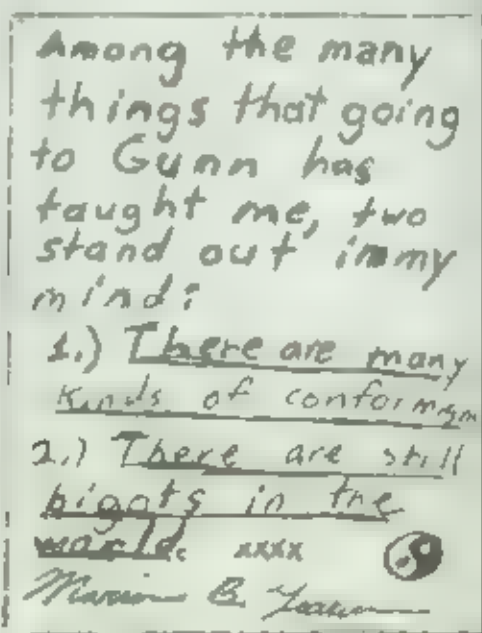 Among the many
things that going
to Gunn has
taught me, two
stand out in my
mind:
1.) There are many
kinds of conformism
2.) There are still
bigots in the
world. xxxx
B.